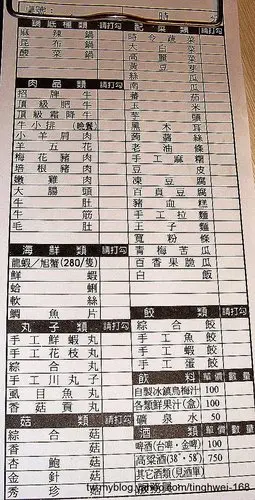 鍋底種類 請打勾
麻辣鍋
昆布鍋
酸菜鍋
肉品類 請打勾
招牌牛
頂級肥牛
頂級霜降牛
牛小排(晚餐)
小羊肩肉
羊五花
梅花豬肉
培根豬肉
嫩雞肉
大腸頭
牛肚
牛筋
毛肚
海鮮類 請打勾
龍蝦/旭蟹(280/隻)
鮮蝦
蛤蜊
軟絲
鯛魚片
丸子類 請打勾
手工鮮蝦丸
手工花枝丸
綜合丸
手工川丸子
虱目魚丸
香菇貢丸
菇類 請打勾
綜合菇
杏鮑菇
金針菇
秀珍菇
配菜類 請打勾
時令蔬菜
大白菜
高麗菜
黃豆芽
絲瓜
南瓜
番茄
玉米
芋頭
黑木耳
蒟蒻絲
老油條
手工麻糬
豆皮
凍豆腐
百頁豆腐
豬血糕
手工拉麵
王子麵
寬粉條
青梅苦瓜
百香果脆瓜
白飯
餃類 請打勾
綜合餃
手工魚餃
手工蝦餃
手工蛋餃
飲料 單價 數量
自製冰鎮烏梅汁 100
各類鮮果汁(盒) 100
礦泉水 50
酒類 單價 數量
啤酒(台啤·金啤) 100
高粱酒(38°·58°) 750
其它酒類(見酒單)
myblog.yahoo.com/tinghwei-168